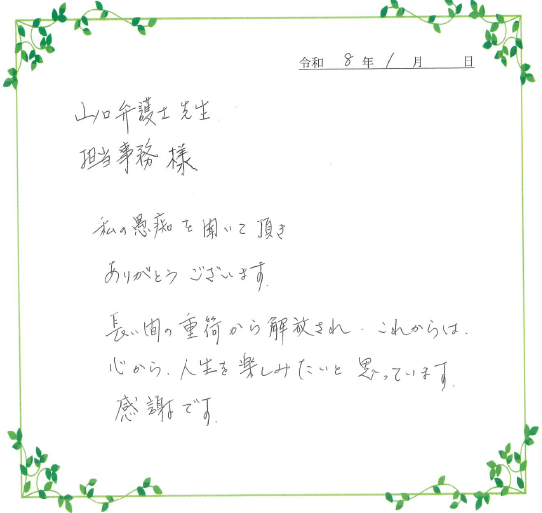 令和 8 年 1 月 日
山口弁護士先生
担当事務 様
私の愚痴を聞いて頂き
ありがとうございます。
長い間の重荷から解放され、これからは、
心から、人生を楽しみたいと思っています。
感謝です。